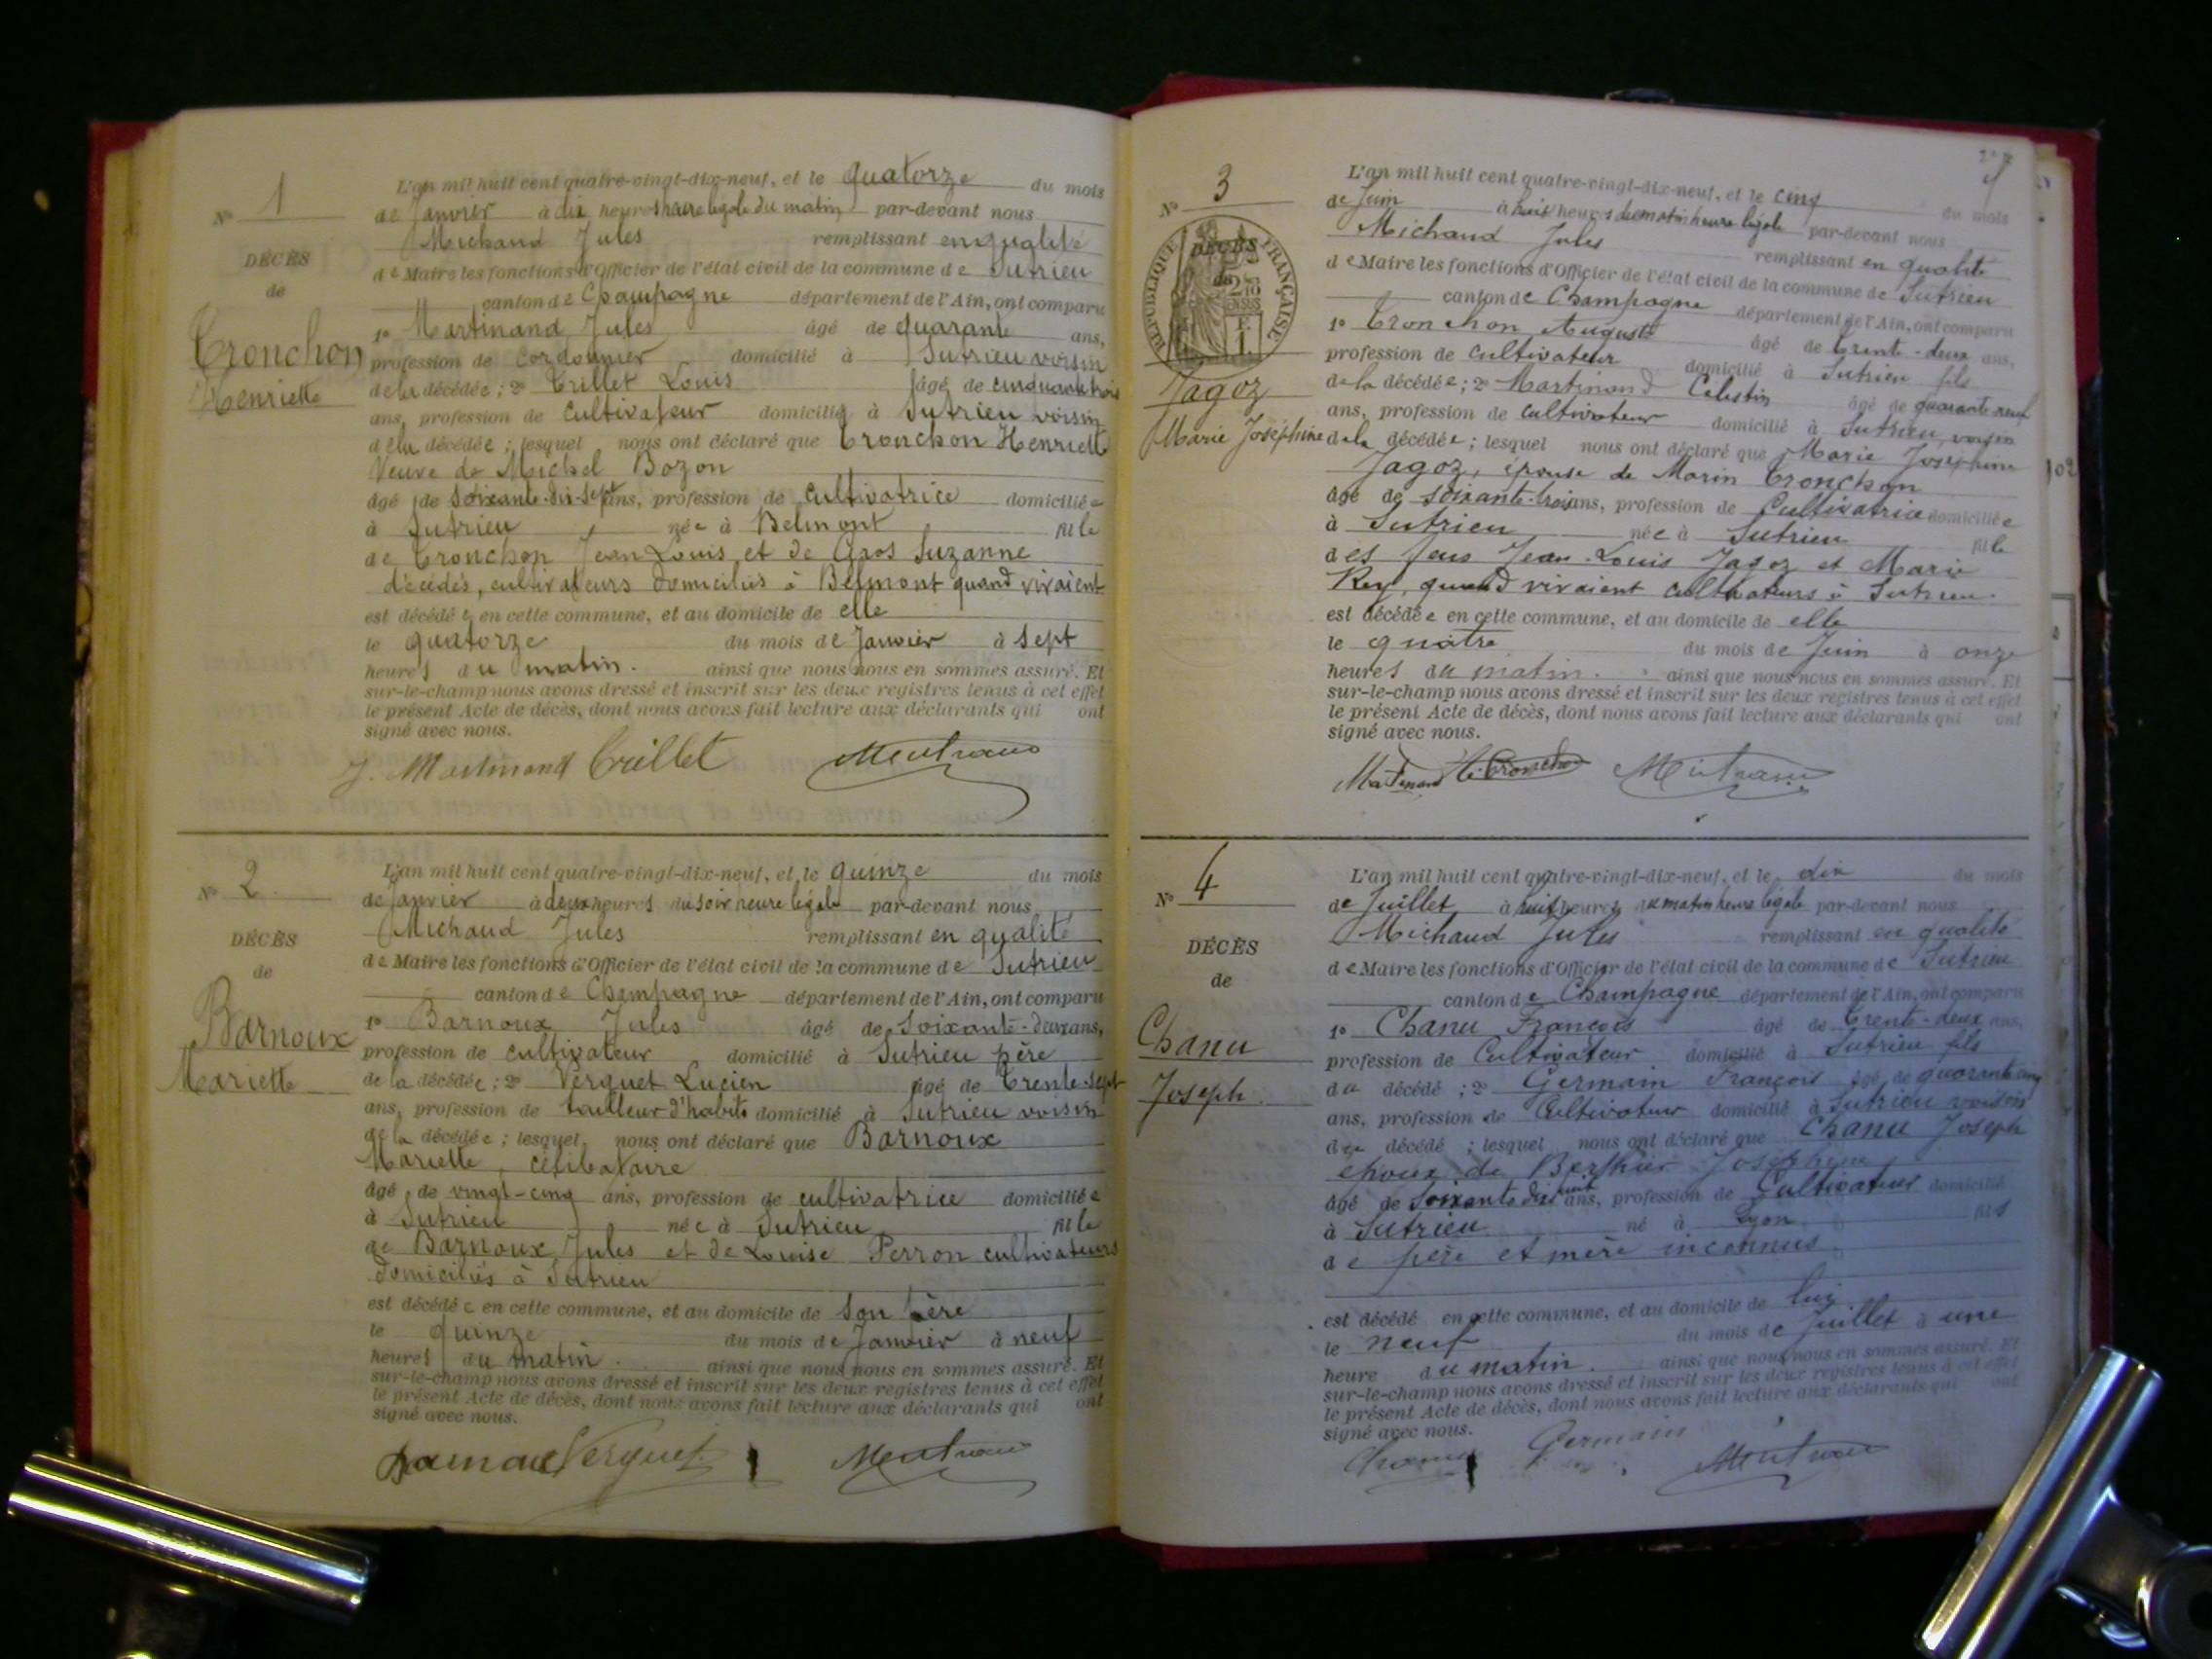 Nº 1
DÉCÈS
de
Tronchon
Henriette
L'an mil huit cent quatre-vingt-dix-neuf, et le quatorze du mois
de Janvier à dix heures heure légale du matin par-devant nous
Michaud Jules remplissant en qualité
de Maire les fonctions d'Officier de l'état civil de la commune de Sutrieu
canton de Champagne département de l'Ain, ont comparu
1º Martinand Jules âgé de quarante ans,
profession de cordonnier domicilié à Sutrieu voisin
de la décédée ; 2º Trillet Louis âgé de cinquante trois
ans, profession de cultivateur domicilié à Sutrieu voisin
de la décédée ; lesquel nous ont déclaré que Tronchon Henriette
Veuve de Michel Bozon
âgé de soixante-dix-sept ans, profession de cultivatrice domiciliée
à Sutrieu née à Belmont fille
de Tronchon Jean Louis et de Gros Suzanne
décédés, cultivateurs domiciliés à Belmont quand vivaient
est décédée en cette commune, et au domicile de elle
le quatorze du mois de Janvier à sept
heures du matin. ainsi que nous nous en sommes assuré. Et
sur-le-champ nous avons dressé et inscrit sur les deux registres tenus à cet effet
le présent Acte de décès, dont nous avons fait lecture aux déclarants qui ont
signé avec nous.
J. Martinand Trillet
Nº 2
DÉCÈS
de
Barnoux
Mariette
L'an mil huit cent quatre-vingt-dix-neuf, et le quinze du mois
de Janvier à deux heures du soir heure légale par-devant nous
Michaud Jules remplissant en qualité
de Maire les fonctions d'Officier de l'état civil de la commune de Sutrieu
canton de Champagne département de l'Ain, ont comparu
1º Barnoux Jules âgé de soixante-deux ans,
profession de cultivateur domicilié à Sutrieu père
de la décédée ; 2º Verguet Lucien âgé de trente-sept
ans, profession de tailleur d'habits domicilié à Sutrieu voisin
de la décédée ; lesquel nous ont déclaré que Barnoux
Mariette, célibataire
âgé de vingt-cinq ans, profession de cultivatrice domiciliée
à Sutrieu née à Sutrieu fille
de Barnoux Jules et de Louise Perron cultivateurs
domiciliés à Sutrieu
est décédée en cette commune, et au domicile de son père
le quinze du mois de Janvier à neuf
heures du matin. ainsi que nous nous en sommes assuré. Et
sur-le-champ nous avons dressé et inscrit sur les deux registres tenus à cet effet
le présent Acte de décès, dont nous avons fait lecture aux déclarants qui ont
signé avec nous.
Barnoux Verguet
Nº 3
RÉPUBLIQUE FRANÇAISE
DÉCÈS
de
Jagoz
Marie Joséphine
L'an mil huit cent quatre-vingt-dix-neuf, et le cinq du mois
de Juin à huit heures du matin heure légale par-devant nous
Michaud Jules remplissant en qualité
de Maire les fonctions d'Officier de l'état civil de la commune de Sutrieu
canton de Champagne département de l'Ain, ont comparu
1º Tronchon Auguste âgé de trente-deux ans,
profession de cultivateur domicilié à Sutrieu fils
de la décédée ; 2º Martinand Célestin âgé de quarante neuf
ans, profession de cultivateur domicilié à Sutrieu, voisin
de la décédée ; lesquel nous ont déclaré que Marie Joséphine
Jagoz, épouse de Marin Tronchon
âgé de soixante-trois ans, profession de Cultivatrice domiciliée
à Sutrieu née à Sutrieu fille
des feus Jean-Louis Jagoz et Marie
Rey, quand vivaient cultivateurs à Sutrieu.
est décédée en cette commune, et au domicile de elle
le quatre du mois de Juin à onze
heures du matin. ainsi que nous nous en sommes assuré. Et
sur-le-champ nous avons dressé et inscrit sur les deux registres tenus à cet effet
le présent Acte de décès, dont nous avons fait lecture aux déclarants qui ont
signé avec nous.
Martinand Tronchon
Nº 4
DÉCÈS
de
Chanu
Joseph.
L'an mil huit cent quatre-vingt-dix-neuf, et le dix du mois
de Juillet à huit heures du matin heure légale par-devant nous
Michaud Jules remplissant en qualité
de Maire les fonctions d'Officier de l'état civil de la commune de Sutrieu
canton de Champagne département de l'Ain, ont comparu
1º Chanu François âgé de trente-deux ans,
profession de Cultivateur domicilié à Sutrieu fils
du décédé ; 2º Germain François âgé de quarante cinq
ans, profession de Cultivateur domicilié à Sutrieu voisin
du décédé ; lesquel nous ont déclaré que Chanu Joseph
époux de Berthier Joséphine
âgé de soixante dix huit ans, profession de Cultivateur domicilié
à Sutrieu né à Lyon fils
de père et mère inconnus
est décédé en cette commune, et au domicile de lui
le neuf du mois de Juillet à une
heure du matin. ainsi que nous nous en sommes assuré. Et
sur-le-champ nous avons dressé et inscrit sur les deux registres tenus à cet effet
le présent Acte de décès, dont nous avons fait lecture aux déclarants qui ont
signé avec nous.
Chanu Germain